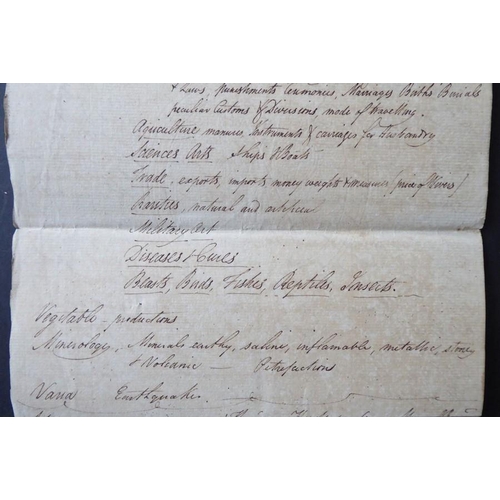 & Laws, punishments Ceremonies, Marriages Births Burials
peculiar Customs & Divisions, mode of travelling.
Agriculture manure Instruments & carriages for Husbandry
Sciences Arts Ships & Boats
Trade, exports, imports money weights & measures /price of
Rarities, natural and
Military art
Diseases & Cures
Beasts, Birds, Fishes, Reptiles, Insects.
Vegetable – productions
Minerology, Minerals earthy, saline, inflamable, metallic, stoney
& Volcanic — Petrefactions
Varia Earthquakes.